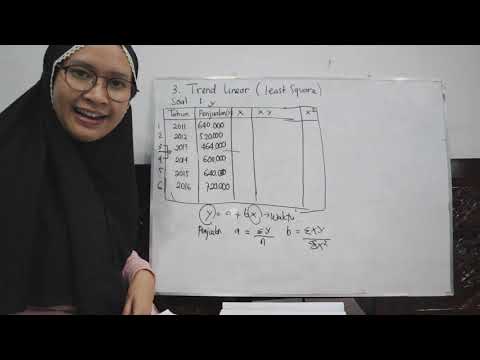 3. Trend Linear (least Square)
Soal 1. y
Tahun Penjualan(y) x xy x²
1 2011 640.000
2 2012 520.000
3 2013 464.000
4 2014 600.000
5 2015 640.000
6 2016 720.000
y = a + bx → waktu
Penjualan a = ΣY/n b = ΣXY/Σx²